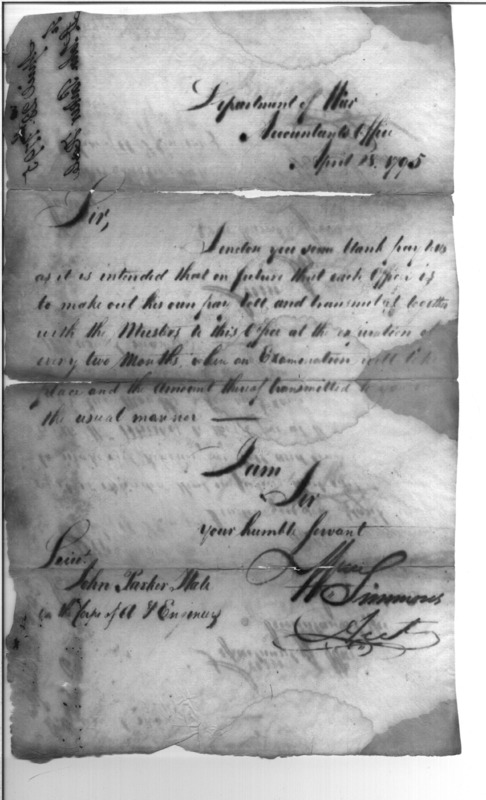 Department of War
Accountants Office
April 18. 1795
Sir,
I enclose you some blank pay rolls
as it is intended that in future that each Officer is
to make out his own pay Roll and transmit it together
with the Musters to this Office at the expiration of
every two Months, when an Examination will take
place and the Amount thereof transmitted to you in
the usual manner —
I am
Sir
your humble Servant
Wm Simmons
Acct
Lieut.
John Parker Hale
in the Corps of A & Engineers